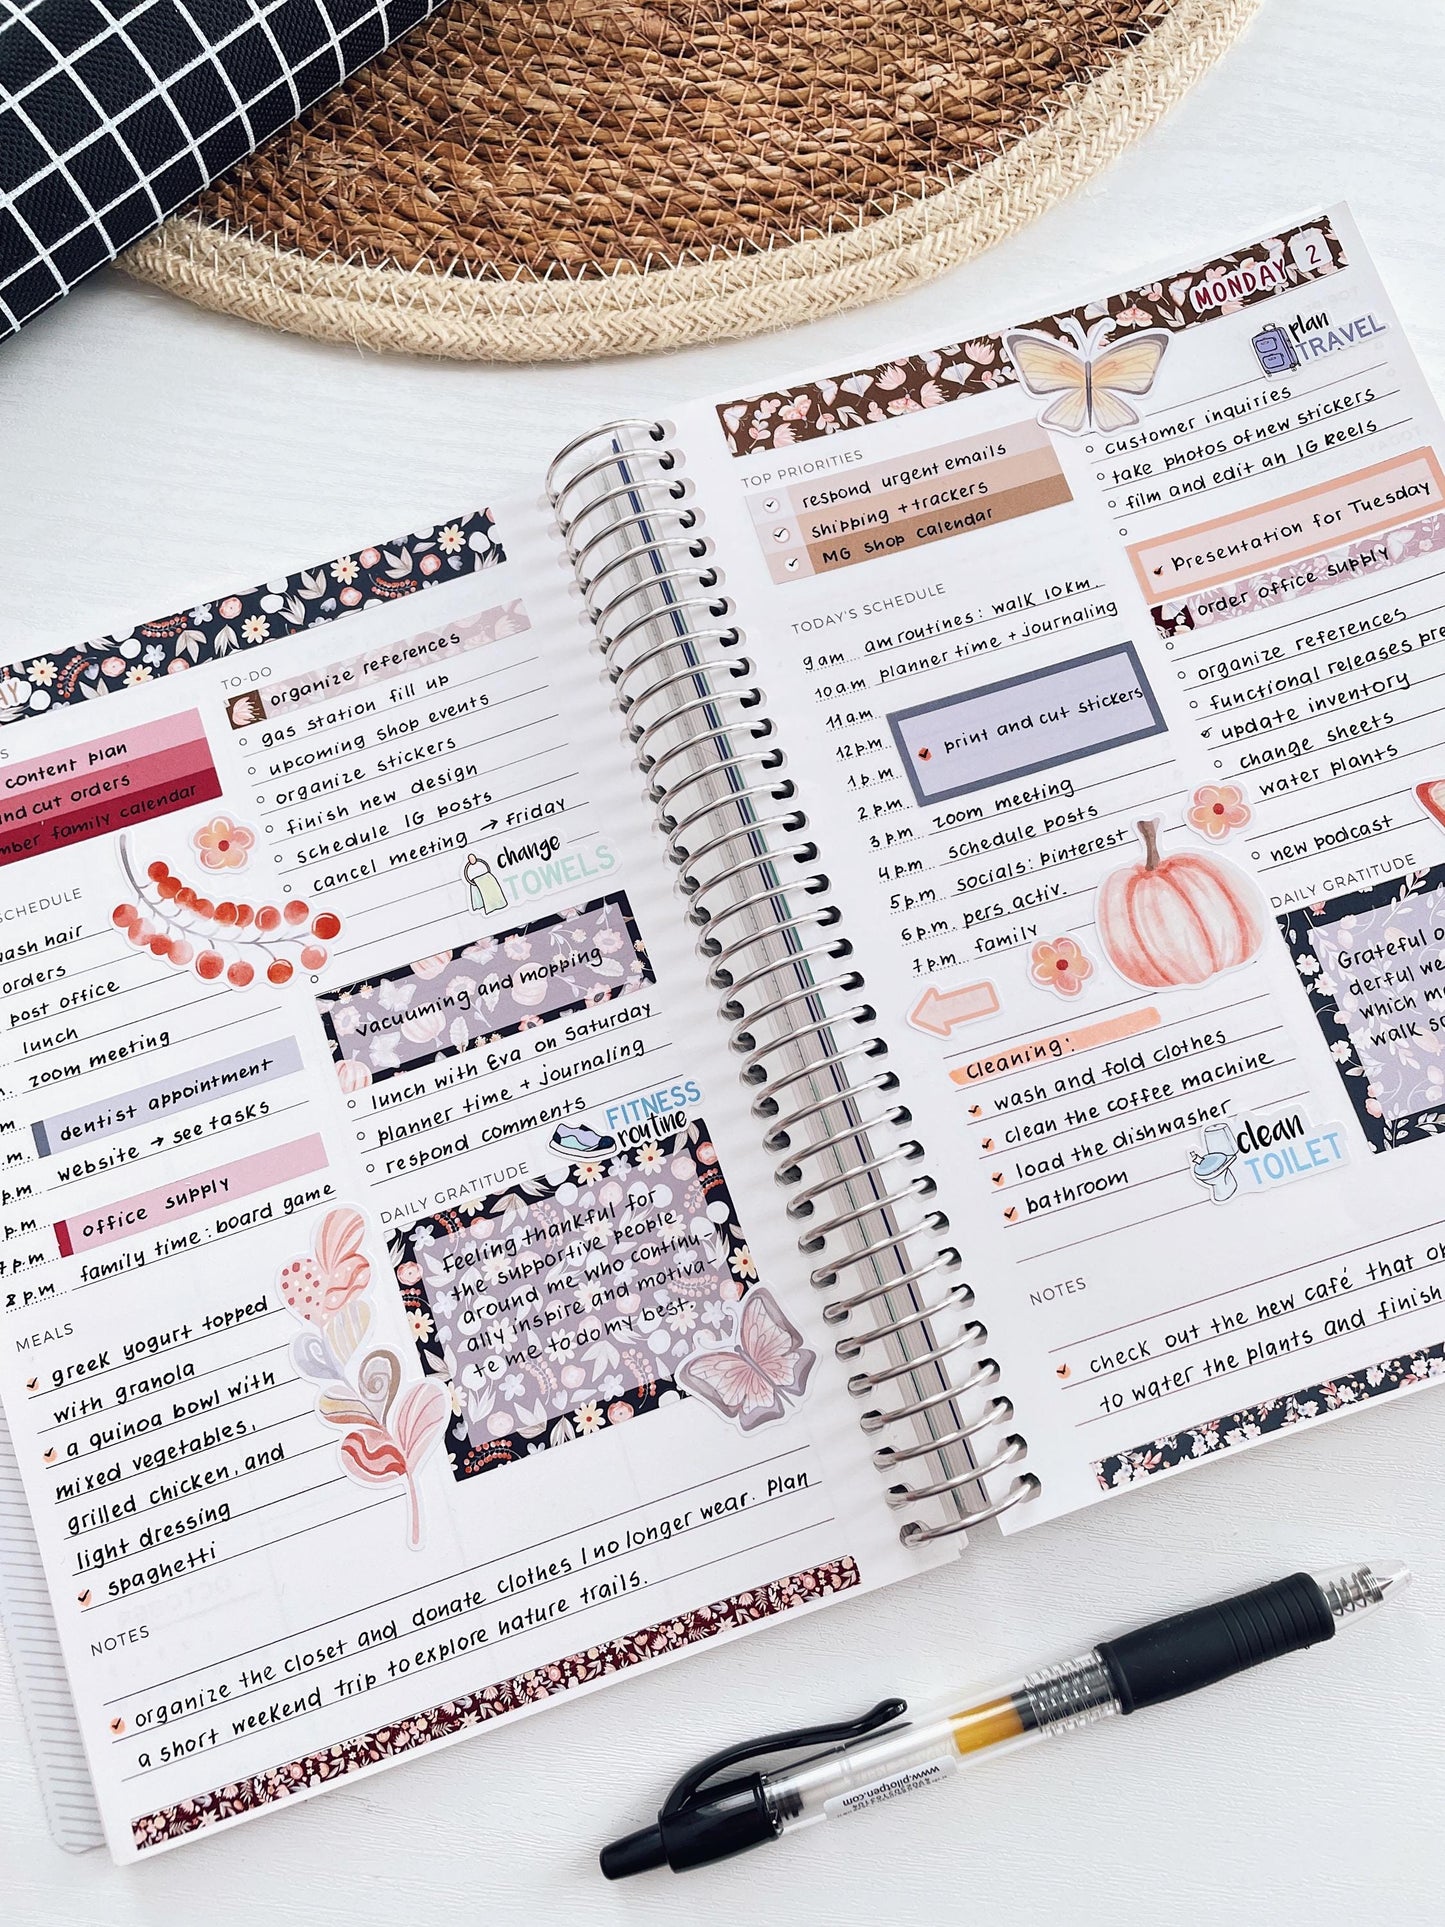 AY
S
content plan
nd cut orders
mber family calendar
SCHEDULE
ash hair
orders
post office
lunch
zoom meeting
dentist appointment
website → see tasks
office supply
family time: board game
m.
m.
.m.
p.m
p.m
7 p.m
8 p.m.
MEALS
greek yogurt topped
with granola
a quinoa bowl with
mixed vegetables,
grilled chicken, and
light dressing
spaghetti
TO-DO
organize references
gas station fill up
upcoming shop events
organize stickers
finish new design
schedule IG posts
cancel meeting → friday
change
TOWELS
vacuuming and mopping
lunch with Eva on Saturday
planner time + journaling
respond comments
FITNESS
routine
DAILY GRATITUDE
Feeling thankful for
the supportive people
around me who continu-
ally inspire and motiva-
te me to do my best.
NOTES
organize the closet and donate clothes I no longer wear. Plan
a short weekend trip to explore nature trails.
MONDAY 2
TOP PRIORITIES
respond urgent emails
shipping + trackers
MG shop calendar
TODAY'S SCHEDULE
9 am am routines: walk 10 km.
10 a.m planner time + journaling
11 a.m
12 p.m print and cut stickers
1 p.m
2 p.m.
3 p.m zoom meeting
4 p.m schedule posts
5 p.m. socials: pinterest
6 p.m. pers. activ.
7 p.m family
Cleaning:
wash and fold clothes
clean the coffee machine
load the dishwasher
bathroom
clean
TOILET
plan
TRAVEL
customer inquiries
take photos of new stickers
film and edit an IG Reels
Presentation for Tuesday
order office supply
organize references
functional releases pre
update inventory
change sheets
water plants
new podcast
DAILY GRATITUDE
Grateful o
derful we
which m
walk s
NOTES
check out the new café that o
to water the plants and finish
www.pilotpen.com